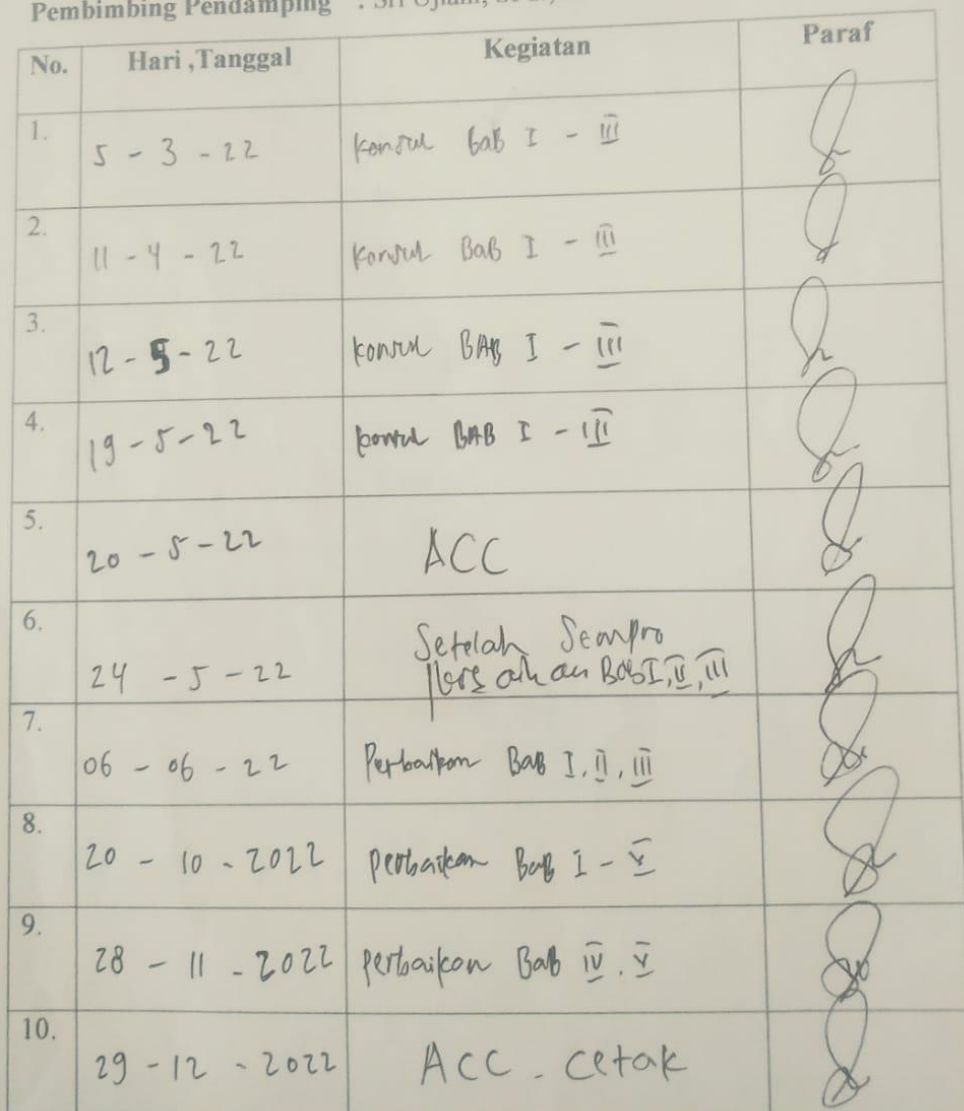 Pembimbing Pendamping : Sri
No. Hari ,Tanggal Kegiatan Paraf
1. 5 - 3 - 22 Konsul Bab I - III
2. 11 - 4 - 22 Konsul BaB I - III
3. 12 - 5 - 22 Konsul BAB I - III
4. 19 - 5 - 22 konsul BAB I - III
5. 20 - 5 - 22 ACC
6. 24 - 5 - 22 Setelah Sempro
Bab I, II, III
7. 06 - 06 - 22 Perbaikan Bab I, II, III
8. 20 - 10 - 2022 perbaikan Bab I - V
9. 28 - 11 - 2022 perbaikan Bab IV, V
10. 29 - 12 - 2022 ACC - Cetak